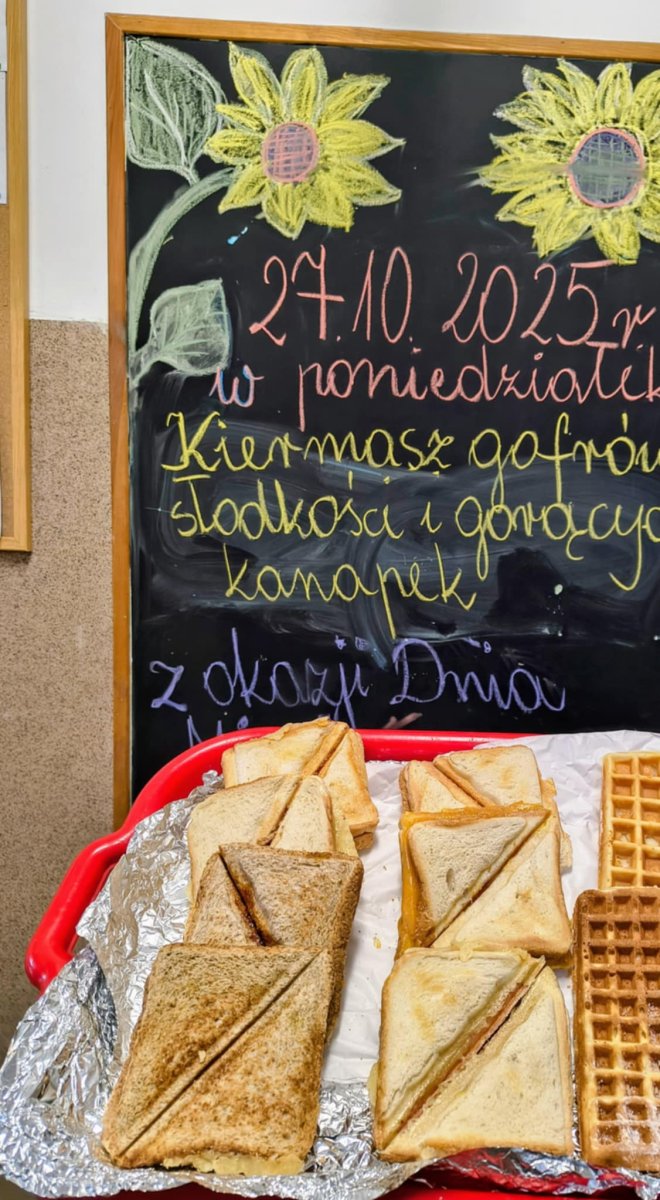 27.10.2025r.
w poniedziałek
Kiermasz gofrów
słodkości i gorących
kanapek
z okazji Dnia